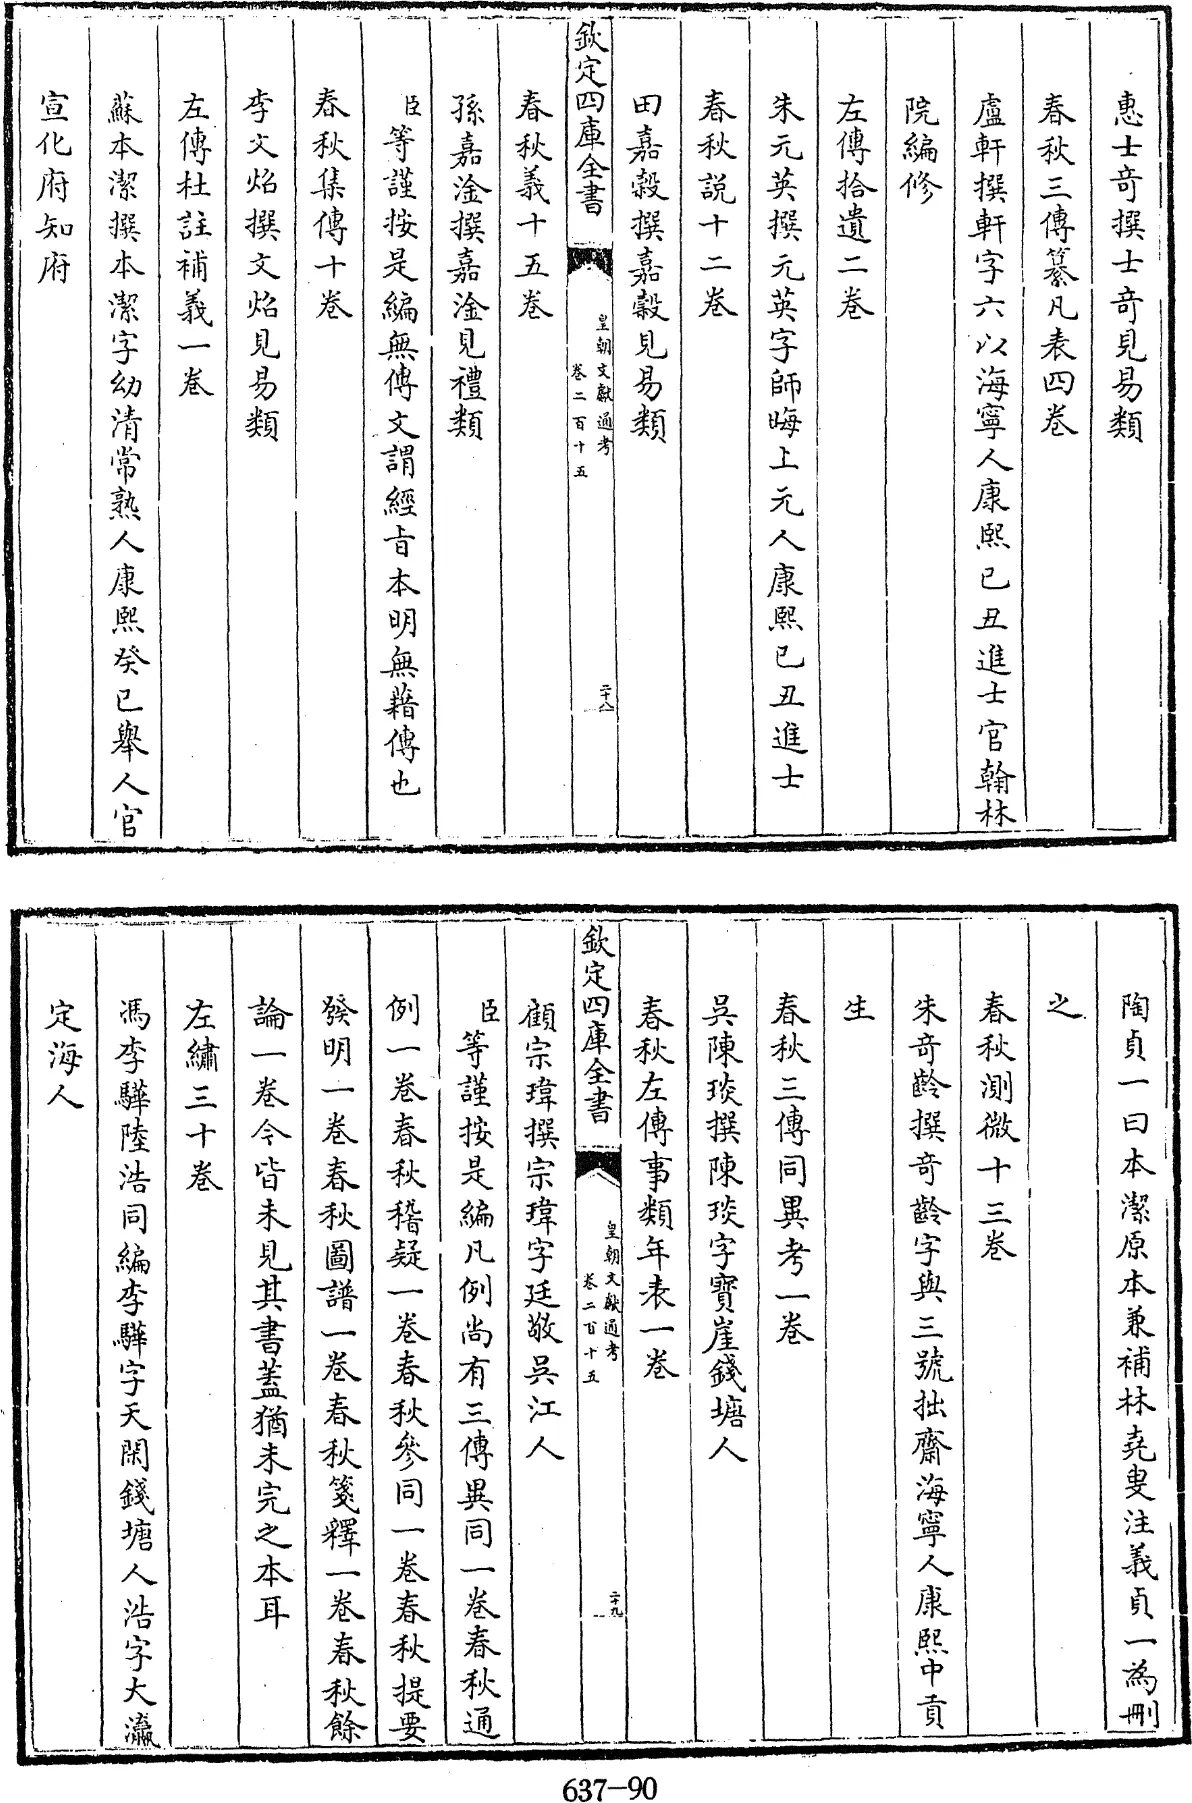 惠士竒撰士竒見易類
春秋三傳纂凡表四卷
盧軒撰軒字六以海寧人康熙己丑進士官翰林
院編修
左傳拾遺二卷
朱元英撰元英字師晦上元人康熙己丑進士
春秋説十二卷
田嘉穀撰嘉穀見易類
欽定四庫全書
皇朝文獻通考
卷二百十五
二十八
春秋義十五卷
孫嘉淦撰嘉淦見禮類
臣等謹按是編無傳文謂經旨本明無藉傳也
春秋集傳十卷
李文炤撰文炤見易類
左傳杜註補義一卷
蘇本潔撰本潔字幼清常熟人康熙癸巳舉人官
宣化府知府
陶貞一曰本潔原本兼補林堯叟注義貞一為刪
之
春秋測微十三卷
朱竒齡撰竒齡字與三號拙齋海寧人康熙中貢
生
春秋三傳同異考一卷
吳陳琰撰陳琰字寶崖錢塘人
春秋左傳事類年表一卷
欽定四庫全書
皇朝文獻通考
卷二百十五
二十九
顧宗瑋撰宗瑋字廷敬吳江人
臣等謹按是編凡例尚有三傳異同一卷春秋通
例一卷春秋稽疑一卷春秋參同一卷春秋提要
發明一卷春秋圖譜一卷春秋箋釋一卷春秋餘
論一卷今皆未見其書蓋猶未完之本耳
左繡三十卷
馮李驊陸浩同編李驊字天閑錢塘人浩字大瀛
定海人
637-90